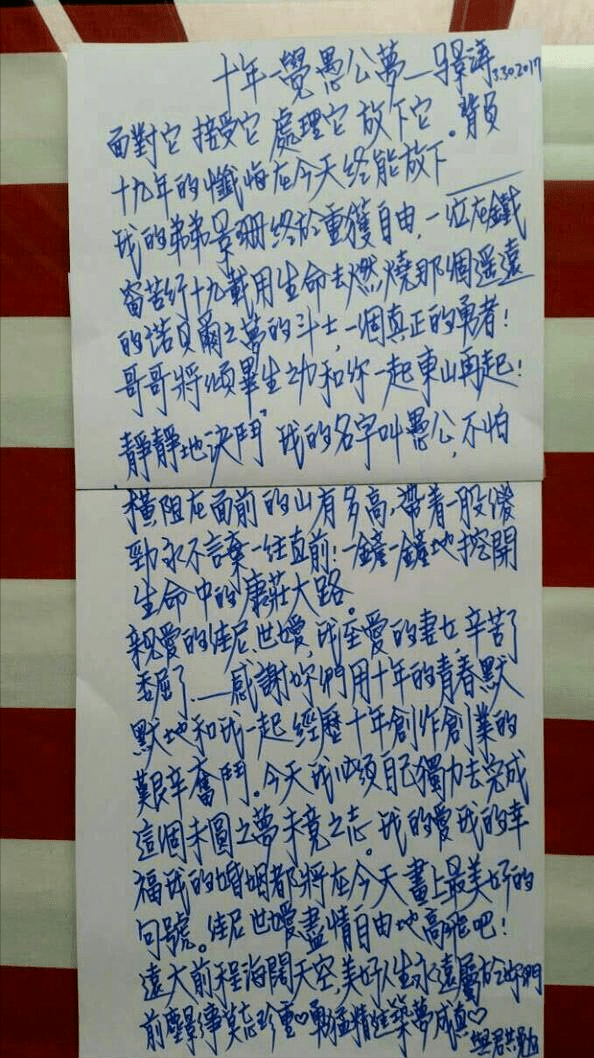 十年一覺愚公夢—馬景濤3.30.2017
面對它 接受它 處理它 放下它。背負
十九年的懺悔在今天終能放下——
我的弟弟景珊終於重獲自由,一位在鐵
窗苦行十九載用生命去燃燒那個遥遠
的諾貝爾之夢的斗士,一個真正的勇者!
哥哥將傾畢生之力和你一起東山再起!
靜靜地決鬥,我的名字叫愚公,不怕
橫阻在面前的山有多高,帶着一股傻
勁永不言棄一往直前!一鏟一鏟地挖開
生命中的康莊大路。
親愛的佳尼,世嬡,我至愛的妻女,辛苦了
委屈了.——感謝妳們用十年的青春默
默地和我一起經歷十年創作創業的
艱辛奮鬥。今天我必須自己獨力去完成
這個未圓之夢未竟之志。我的愛我的幸
福我的婚姻都將在今天畫上最美好的
句號。佳尼世嬡盡情自由地高飛吧!
遠大前程海闊天空,美好人生永遠屬於妳們
前塵影事莫忘珍重♡勇猛精進築夢成真♡
與君共勉